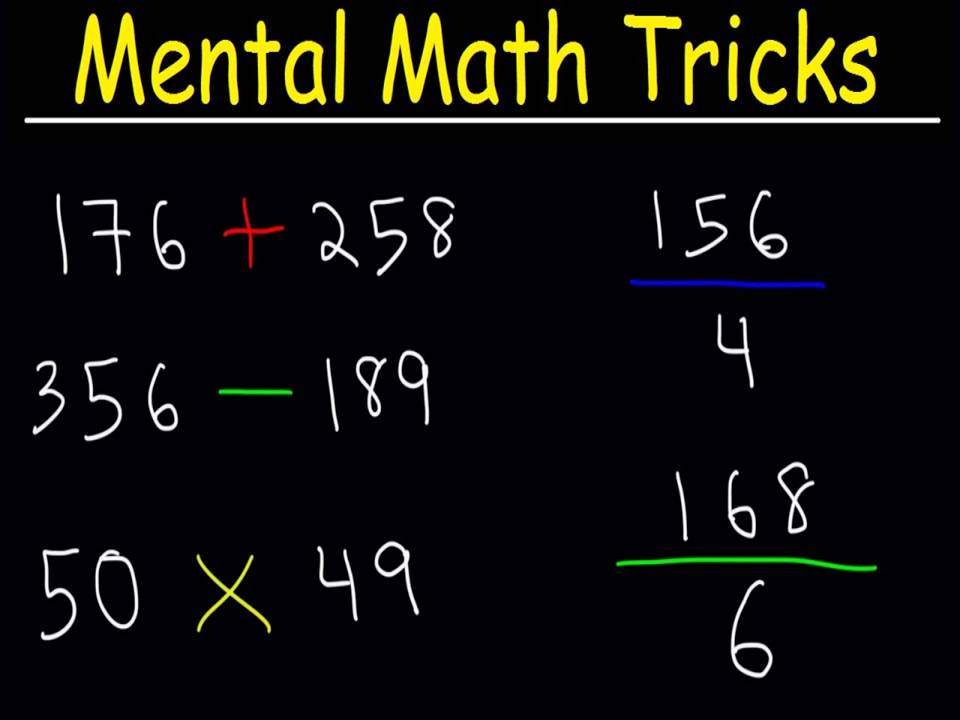 Mental Math Tricks
176 + 258
356 − 189
50 × 49
156
4
168
6